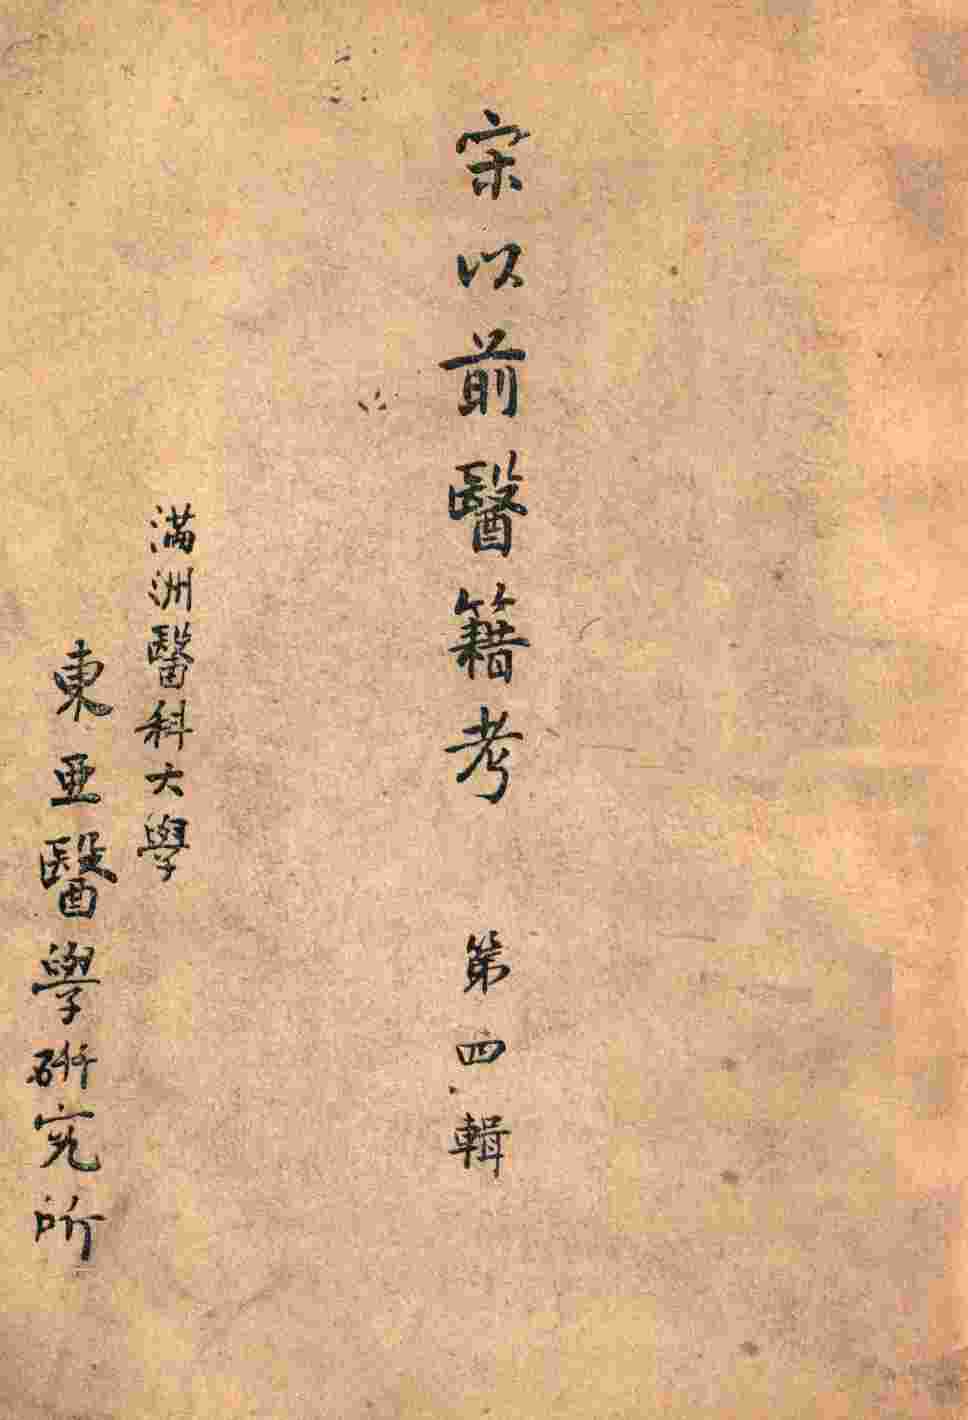 宋以前醫籍考 第四輯
滿洲醫科大學
東亜醫學研究所